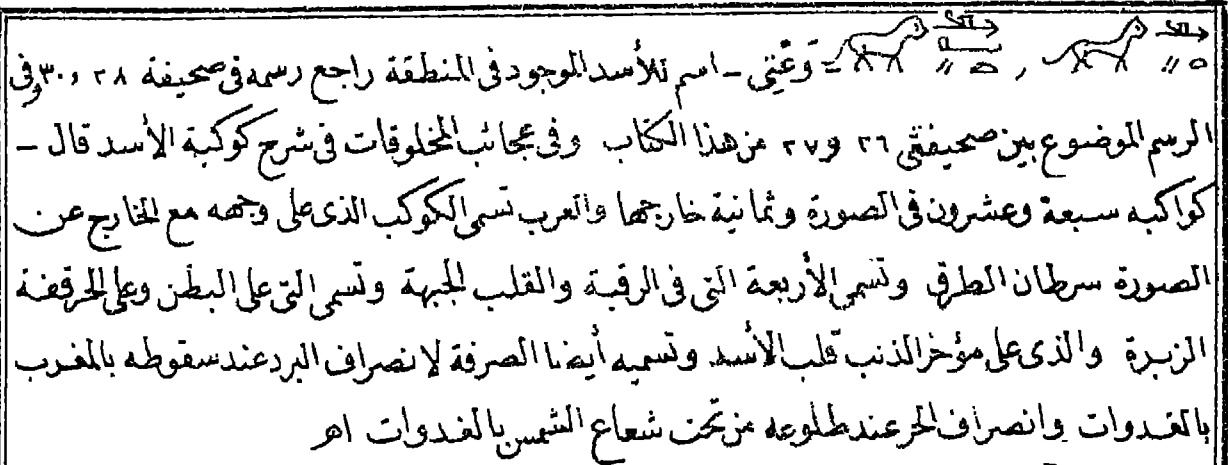 = وَعْتِى - اسم للأسد الموجود فى المنطقة راجع رسمه فى صحيفة ٢٨ و ٣٠ وفى
الرسم الموضوع بين صحيفتى ٢٦ و ٢٧ من هذا الكتاب وفى عجائب المخلوقات فى شرح كوكبة الأسد قال -
كواكبه سبعة وعشرون فى الصورة وثمانية خارجها والعرب تسمى الكوكب الذى على وجهه مع الخارج عن
الصورة سرطان الطرق وتسمى الأربعة التى فى الرقبة والقلب الجبهة وتسمى التى على البطن وعلى الحرقفة
الزبرة والذى على مؤخر الذنب قلب الأسد وتسميه أيضا الصرفة لانصراف البرد عند سقوطه بالمغرب
بالغدوات وانصراف الحر عند طلوعه من تحت شعاع الشمس بالغدوات اهـ